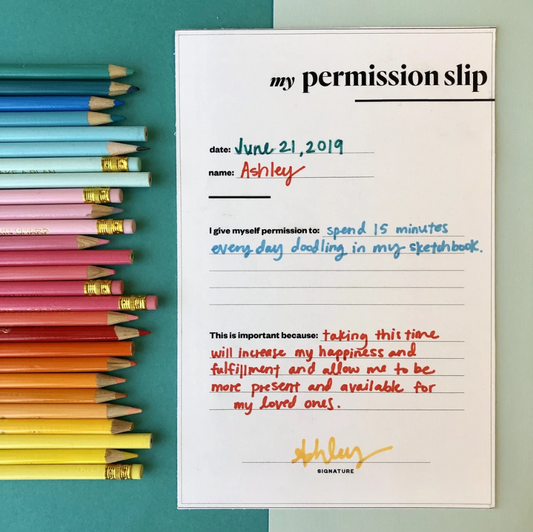 my permission slip
date: June 21, 2019
name: Ashley
I give myself permission to: spend 15 minutes
every day doodling in my sketchbook.
This is important because: taking this time
will increase my happiness and
fulfillment and allow me to be
more present and available for
my loved ones.
Ashley
SIGNATURE